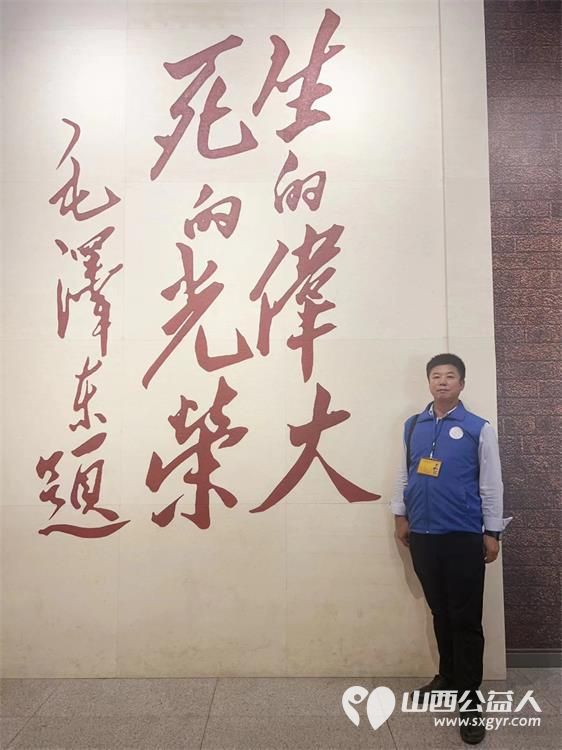 生的偉大
死的光榮
毛澤东题
山西公益人
www.sxgyr.com